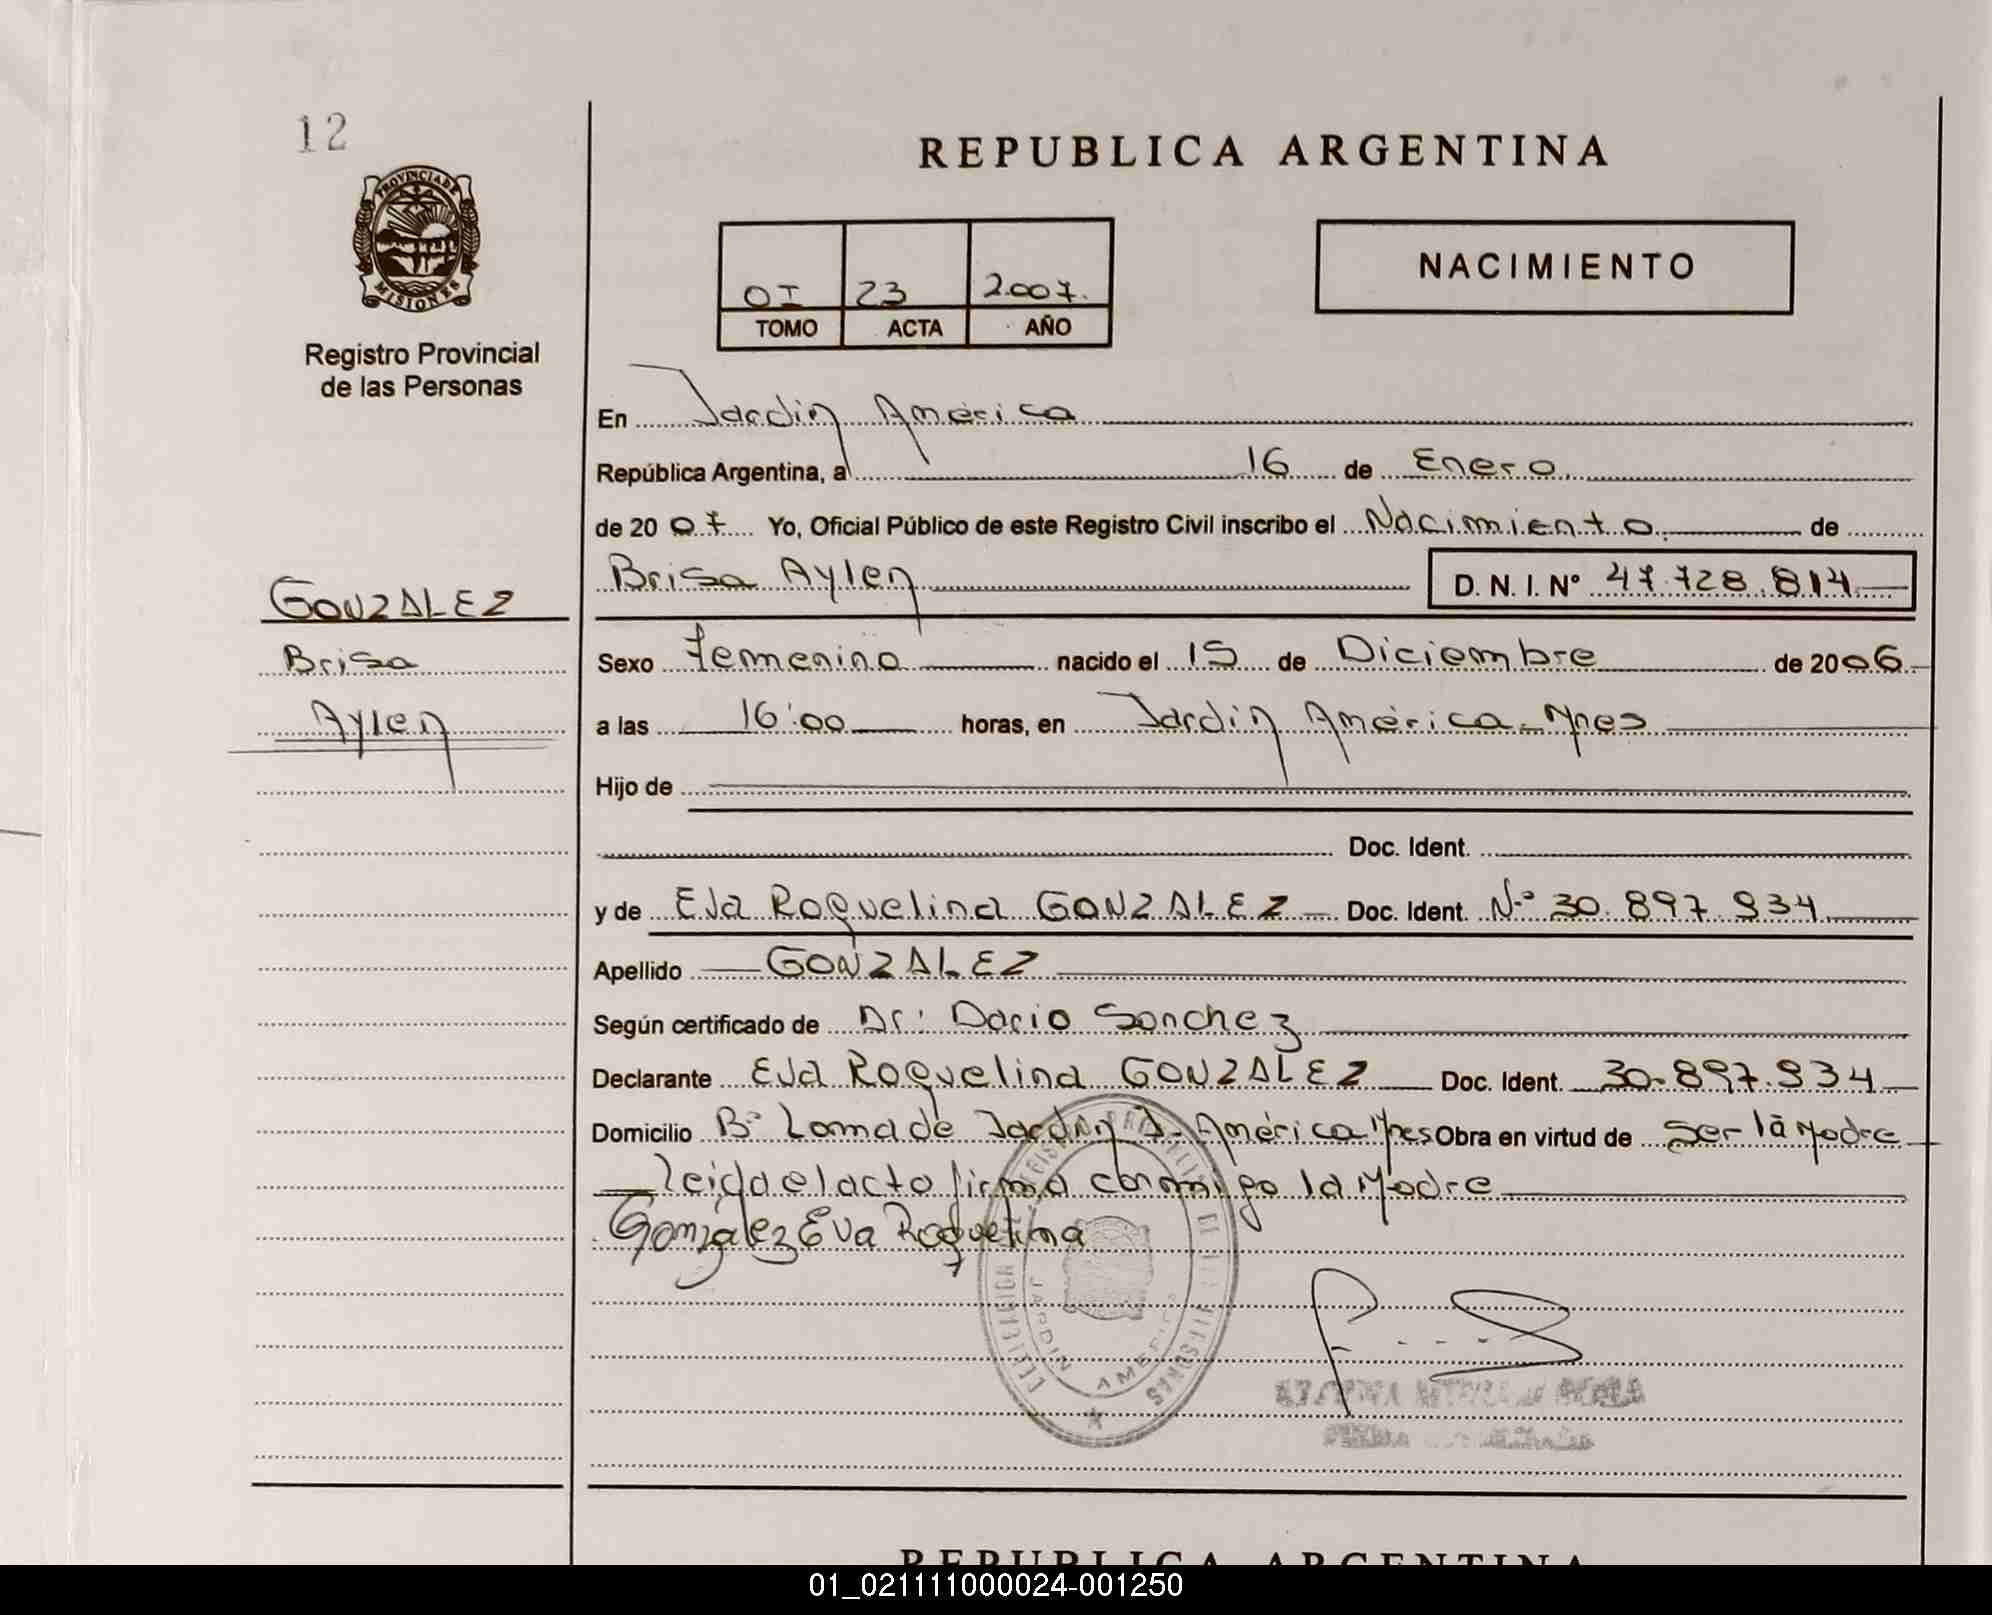 12
PROVINCIA DE
MISIONES
Registro Provincial
de las Personas
REPUBLICA ARGENTINA
OI 23 2.007.
TOMO ACTA AÑO
NACIMIENTO
En Jardin América
República Argentina, a 16 de Enero
de 20 07 Yo, Oficial Público de este Registro Civil inscribo el Nacimiento de
Brisa Aylen D. N. I. Nº 47.728.814
GONZALEZ
Brisa
Aylen
Sexo Femenino nacido el 15 de Diciembre de 2006
a las 16:00 horas, en Jardin América - Mnes
Hijo de
Doc. Ident.
y de Eva Roquelina GONZALEZ Doc. Ident. Nº 30.897.934
Apellido GONZALEZ
Según certificado de Dr. Dario Sanchez
Declarante Eva Roquelina GONZALEZ Doc. Ident. 30.897.934
Domicilio Bº Loma de Jardin J. América Mnes Obra en virtud de Ser la Madre
leida el acto firma conmigo la Madre
González Eva Roquelina
JARDIN AMERICA
REPUBLICA ARGENTINA
01_021111000024-001250